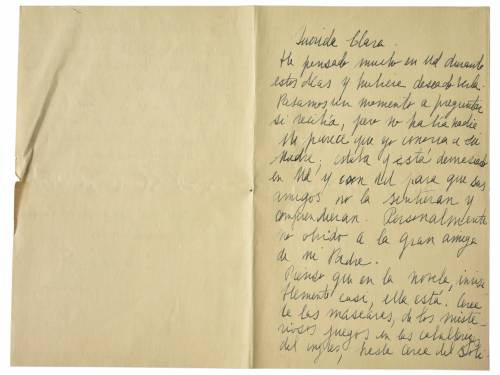 Querida Clara.
He pensado mucho en Ud durante
estos días y hubiera deseado verla.
Pasamos un momento a preguntar
si recibía, pero no había nadie
Me parece que yo conocía a su
Madre; estaba y está demasiado
en Ud, y con Ud para que sus
amigos no la sintieran y
comprendieran. Personalmente
no olvido a la gran amiga
de mi Padre.
Pienso que en la novela, invisi
blemente casi, ella está. Cerca
de las máscaras, de los miste-
riosos juegos en las caballerizas
del inglés, hasta cerca del